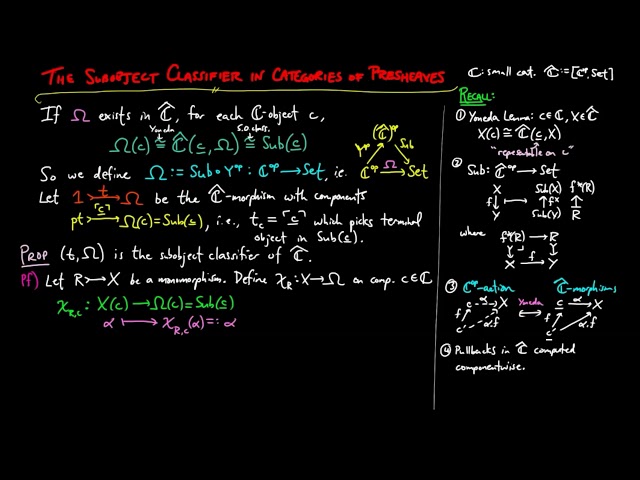 THE SUBOBJECT CLASSIFIER IN CATEGORIES OF PRESHEAVES
ℂ: small cat. ℂ̂ := [ℂᵒᵖ, Set]
If Ω exists in ℂ̂, for each ℂ-object c,
Ω(c) ≅ ℂ̂(c̲, Ω) ≅ Sub(c̲)
Yoneda
S.O. class.
So we define Ω := Sub ∘ Yᵒᵖ : ℂᵒᵖ → Set, i.e.
(ℂ̂)ᵒᵖ
Yᵒᵖ Sub
ℂᵒᵖ Ω→ Set
Let 1 >t→ Ω be the ℂ̂-morphism with components
pt >⌜c̲⌝→ Ω(c) = Sub(c̲), i.e., t_c = ⌜c̲⌝ which picks terminal
object in Sub(c̲).
PROP (t, Ω) is the subobject classifier of ℂ̂.
Pf) Let R ↣ X be a monomorphism. Define χ_R : X → Ω on comp. c ∈ ℂ
χ_{R,c} : X(c) → Ω(c) = Sub(c̲)
α ↦ χ_{R,c}(α) =: α
RECALL:
① Yoneda Lemma: c ∈ ℂ, X ∈ ℂ̂
X(c) ≅ ℂ̂(c̲, X)
"representable on c"
② Sub: ℂ̂ᵒᵖ → Set
X Sub(X) f*(R)
f↓ ↦ ↑f* ↑
Y Sub(Y) R
where f*(R) → R
X f→ Y
③ ℂᵒᵖ-action ℂ̂-morphisms
c -α→ X Yoneda c̲ α→ X
f α.f f α.f
c' c̲'
④ Pullbacks in ℂ̂ computed
componentwise.